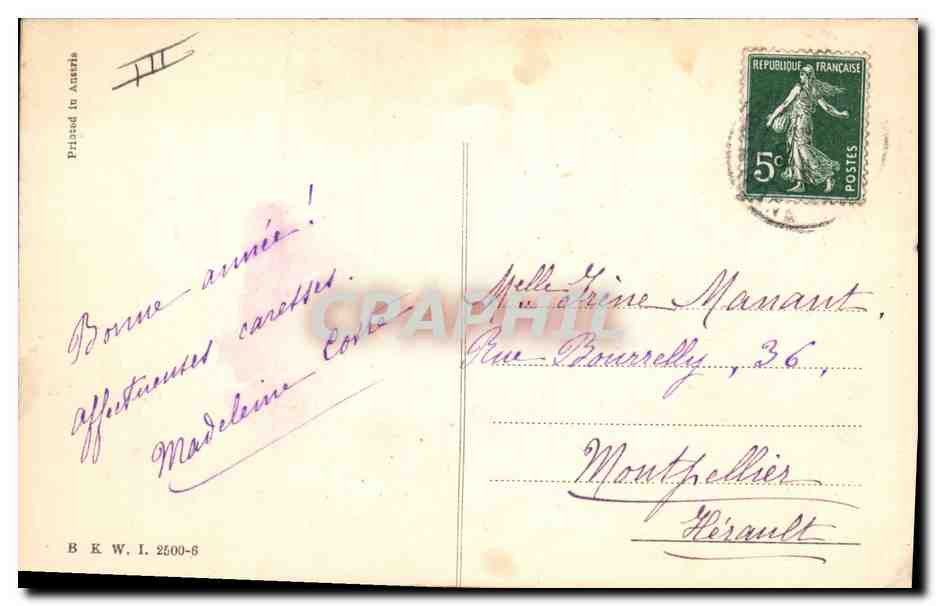 Printed in Austria
RÉPUBLIQUE FRANÇAISE
5c
POSTES
Bonne année !
affectueuses caresses.
Madeleine Coste
CPAPHIL
Melle Irène Manant,
Rue Bourrelly, 36,
Montpellier
Hérault
B K W. I. 2500-6